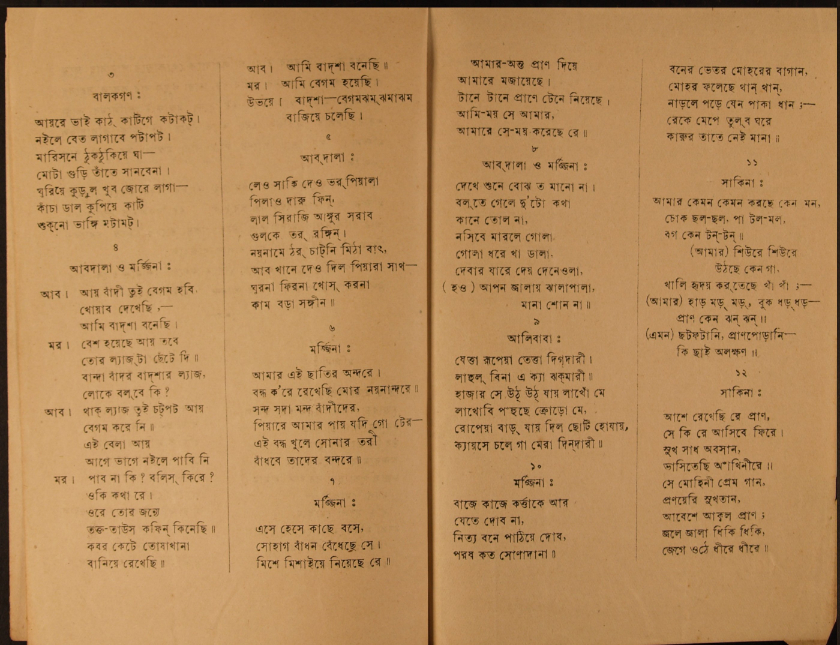 ৩
বালকগণ :
আয়রে ভাই কাঠ্ কাটিগে কটাকট্।
নইলে বেত লাগাবে পটাপট।
মারিসনে ঠুকঠুকিয়ে ঘা—
মোটা গুড়ি তাঁতে সানবেনা।
ঘুরিয়ে কুড়ুল খুব জোরে লাগা—
কাঁচা ডাল কুপিয়ে কাটি
শুকনো ভাঙ্গি মটামট্।
৪
আবদালা ও মর্জ্জিনা :
আব। আয় বাঁদী তুই বেগম হবি,
খোয়াব দেখেছি ,—
আমি বাদ্শা বনেছি।
মর। বেশ হয়েছে আয় তবে
তোর ল্যাজ্‌টা ছেঁটে দি॥
বান্দা বাঁদর বাদশার ল্যাজ,
লোকে বল্‌বে কি ?
আব। থাক্ ল্যাজ তুই চট্‌পট আয়
বেগম করে নি॥
এই বেলা আয়
আগে ভাগে নইলে পাবি নি
মর। পাব না কি ? বলিস্ কিরে ?
ওকি কথা রে।
ওরে তোর জন্যে
তক্ত-তাউস কফিন্ কিনেছি॥
কবর কেটে তোষাখানা
বানিয়ে রেখেছি॥
আব। আমি বাদ্শা বনেছি॥
মর। আমি বেগম হয়েছি।
উভয়ে। বাদ্শা—বেগমঝম্‌ঝমাঝম
বাজিয়ে চলেছি।
৫
আব্‌দালা :
লেও সাকি দেও ভর্ পিয়ালা
পিলাও দারু ফিন্,
লাল সিরাজি আঙ্গুর সরাব
গুলকে তর্ রঙ্গিন্।
নয়নামে ঠর্ চাট্‌নি মিঠা বাৎ,
আব খানে দেও দিল পিয়ারা সাথ—
ঘুরনা ফিরনা খোস্ করনা
কাম বড়া সঙ্গীন॥
৬
মর্জ্জিনা :
আমার এই ছাতির অন্দরে।
বন্ধ ক'রে রেখেছি মোর নয়নান্দরে॥
সন্দ সদা মন্দ বাঁদীদের,
পিয়ারে আমার পায় যদি গো টের—
এই বন্ধ খুলে সোনার তরী
বাঁধবে তাদের বন্দরে॥
৭
মর্জ্জিনা :
এসে হেসে কাছে বসে,
সোহাগ বাঁধন বেঁধেছে সে।
মিশে মিশাইয়ে নিয়েছে রে॥
আমার-অন্তু প্রাণ দিয়ে
আমারে মজায়েছে।
টানে টানে প্রাণে টেনে নিয়েছে।
আমি-ময় সে আমার,
আমারে সে-ময় করেছে রে॥
৮
আব্‌দালা ও মর্জ্জিনা :
দেখে শুনে বোঝ ত মানো না।
বল্‌তে গেলে দু'টো কথা
কানে তোল না,
নসিবে মারলে গোলা,
গোলা ধরে খা ডালা,
দেবার যারে দেয় দেনেওলা,
( হও ) আপন জালায় ঝালাপালা,
মানা শোন না॥
৯
আলিবাবা :
যেত্তা রূপেয়া তেত্তা দিগ্‌দারী।
লাহুল্ বিনা এ ক্যা ঝক্‌মারী॥
হাজার সে উঠ্ উঠ্ যায় লাখোঁ মে
লাখোবি পহুছে ক্রোড়ো মে,
রোপেয়া বাড়্ যায় দিল ছোটি হোযায়,
ক্যায়সে চলে গা মেরা দিন্‌দারী॥
১০
মর্জ্জিনা :
বাজে কাজে কর্ত্তাকে আর
যেতে দোব না,
নিত্য বনে পাঠিয়ে দোব,
পরব কত সোণাদানা॥
বনের ভেতর মোহরের বাগান,
মোহর ফলেছে থান্ থান্,
নাড়লে পড়ে যেন পাকা ধান ;—
রেকে মেপে তুল্‌ব ঘরে
কারুর তাতে নেই মানা॥
১১
সাকিনা :
আমার কেমন কেমন করছে কেন মন,
চোক ছল-ছল, পা টল-মল,
বগ কেন টন্-টন্॥
(আমার) শিউরে শিউরে
উঠছে কেন গা,
খালি হৃদয় কর্‌তেছে খাঁ খাঁ ;—
(আমার) হাড় মড়্ মড়্, বুক ধড়্ ধড়—
প্রাণ কেন ঝন্ ঝন্॥
(এমন) ছটফটানি, প্রাণপোড়ানি—
কি ছাই অলক্ষণ॥
১২
সাকিনা :
আশে রেখেছি রে প্রাণ,
সে কি রে আসিবে ফিরে।
সুখ সাধ অবসান,
ভাসিতেছি আঁখিনীরে॥
সে মোহিনী প্রেম গান,
প্রণয়েরি সুখতান,
আবেশে আকুল প্রাণ ;
জলে জালা ধিকি ধিকি,
জেগে ওঠে ধীরে ধীরে॥